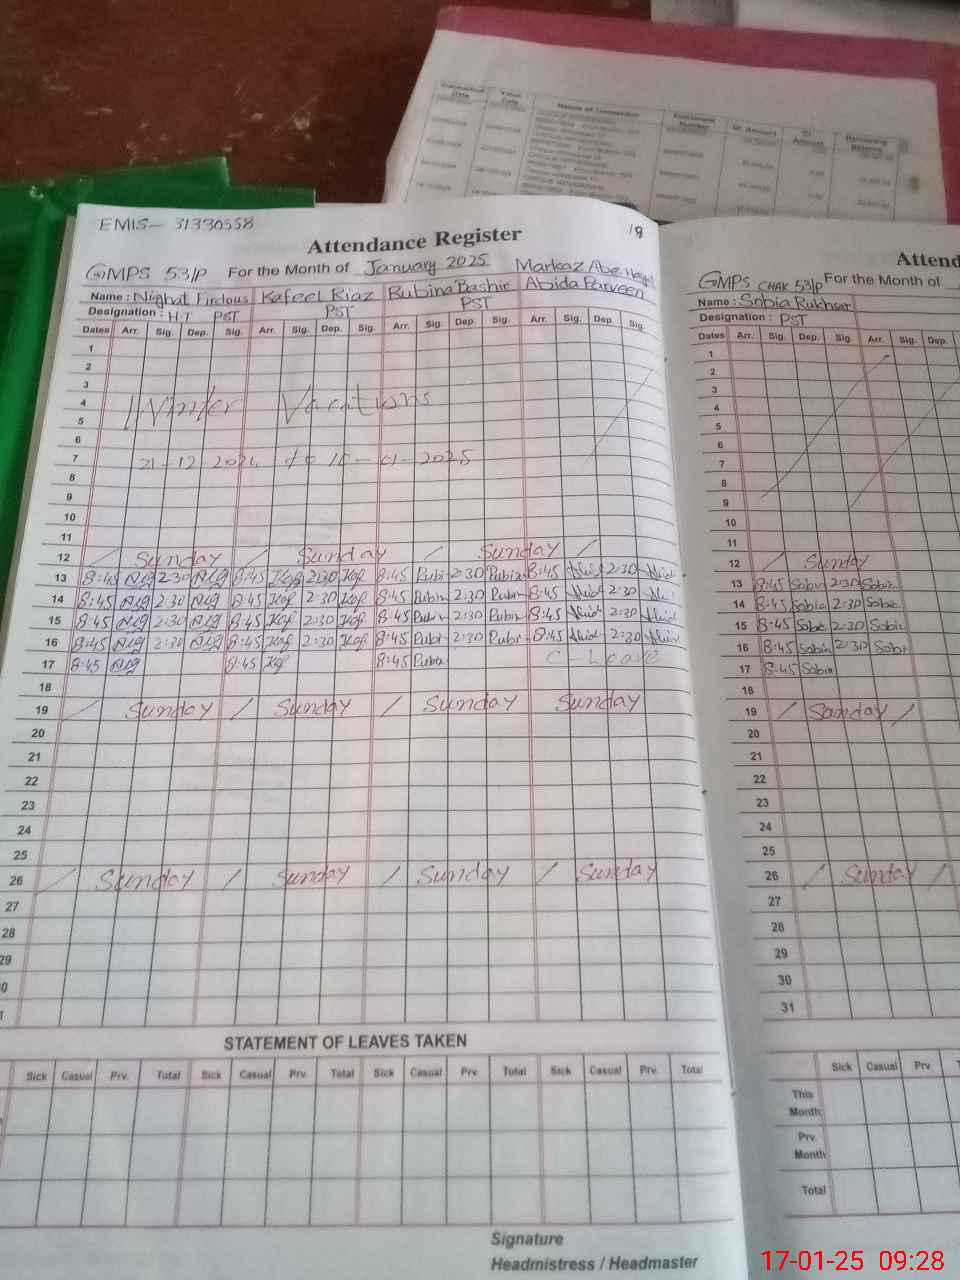 Transaction Date Value Date Nature of Transaction Instrument Number Dr. Amount Cr. Amount Remaining Balance
EMIS- 31330558
18
Attendance Register
GMPS 53/P For the Month of January 2025 Markaz Abe Hayat
Name : Nighat Firdous Kafeel Riaz Rubina Bashir Abida Parveen
Designation : H.T PST PST PST
Dates Arr. Sig. Dep. Sig. Arr. Sig. Dep. Sig. Arr. Sig. Dep. Sig. Arr. Sig. Dep. Sig.
1
2
3
4 Winter Vacations
5
6
7 21-12-2024 to 10-01-2025
8
9
10
11
12 Sunday Sunday Sunday
13 8:45 2:30 8:45 Kaf 2:30 Kaf 8:45 Rubi 2:30 Rubina 8:45 2:30
14 8:45 2:30 8:45 Kaf 2:30 Kaf 8:45 Rubin 2:30 Rubin 8:45 2:30
15 8:45 2:30 8:45 Kaf 2:30 Kaf 8:45 Rubin 2:30 Rubin 8:45 2:30
16 8:45 2:30 8:45 Kaf 2:30 Kaf 8:45 Rubi 2:30 Rubin 8:45 2:30
17 8:45 8:45 Kaf 8:45 Rubin C-Leave
18
19 Sunday Sunday Sunday Sunday
20
21
22
23
24
25
26 Sunday Sunday Sunday Sunday
27
28
29
0
1
STATEMENT OF LEAVES TAKEN
Sick Casual Prv. Total Sick Casual Prv. Total Sick Casual Prv. Total Sick Casual Prv. Total
Signature
Headmistress / Headmaster
Attend
GMPS CHAK 53/P For the Month of
Name : Sobia Rukhsar
Designation : PST
Dates Arr. Sig. Dep. Sig. Arr. Sig. Dep.
1
2
3
4
5
6
7
8
9
10
11
12 Sunday
13 8:45 Sobia 2:30 Sobia
14 8:45 Sobia 2:30 Sobia
15 8:45 Sobia 2:30 Sobia
16 8:45 Sobia 2:30 Sobia
17 8:45 Sobia
18
19 Sunday
20
21
22
23
24
25
26 Sunday
27
28
29
30
31
Sick Casual Prv.
This Month
Prv. Month
Total
17-01-25 09:28